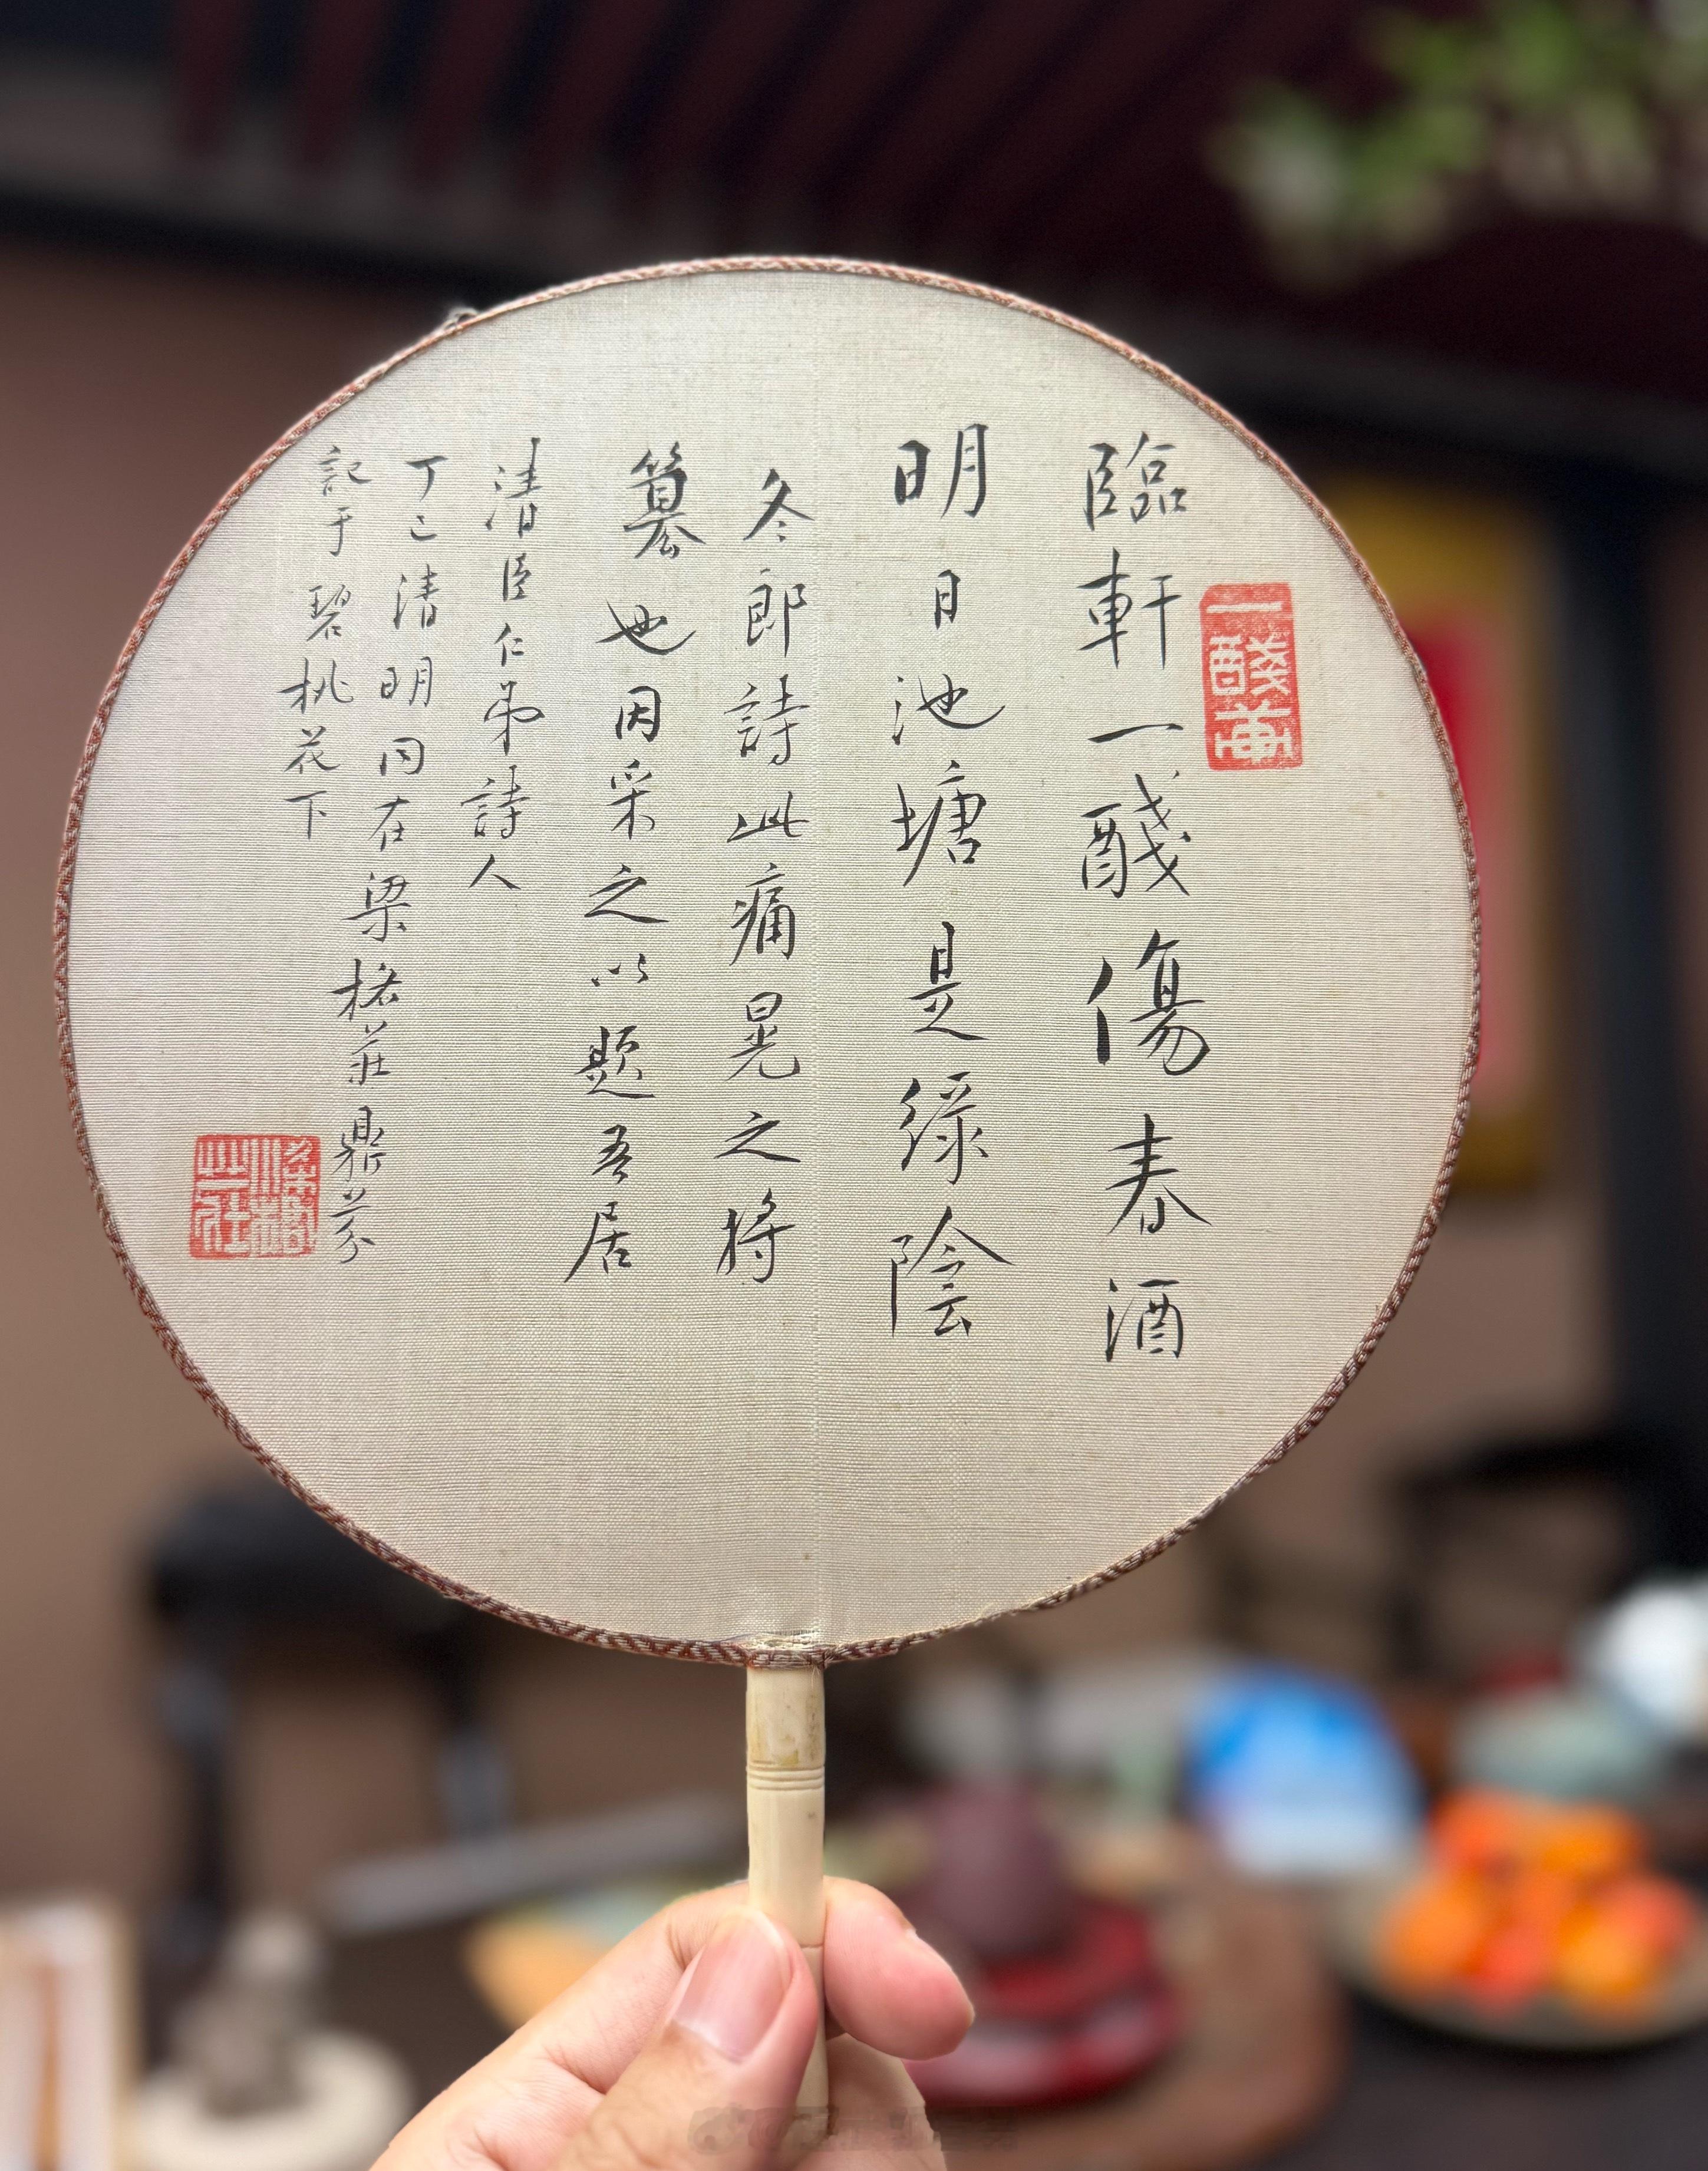 臨軒一醆傷春酒
明日池塘是綠陰
冬郎詩此痛晃之將
篡也因采之以題吾居
清臣仁弟詩人
丁巳清明同在梁格莊鼎芬
記于碧桃花下
一醆亭